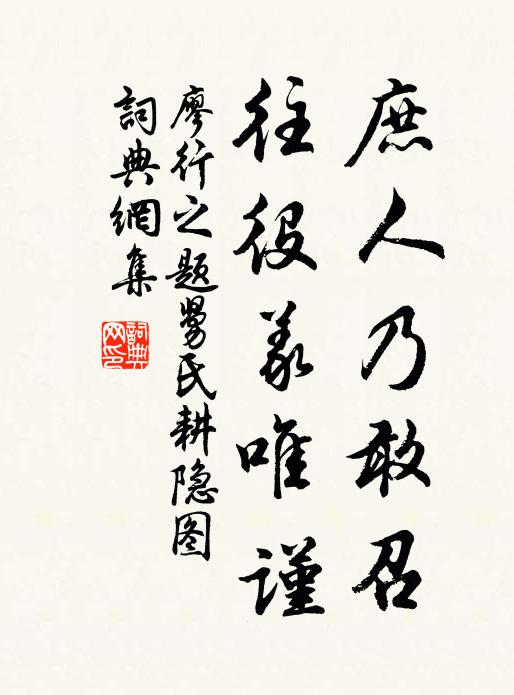 庶人乃敢召
往役義唯謹
廖行之題民耕隐图
詞典網集
詞典网印